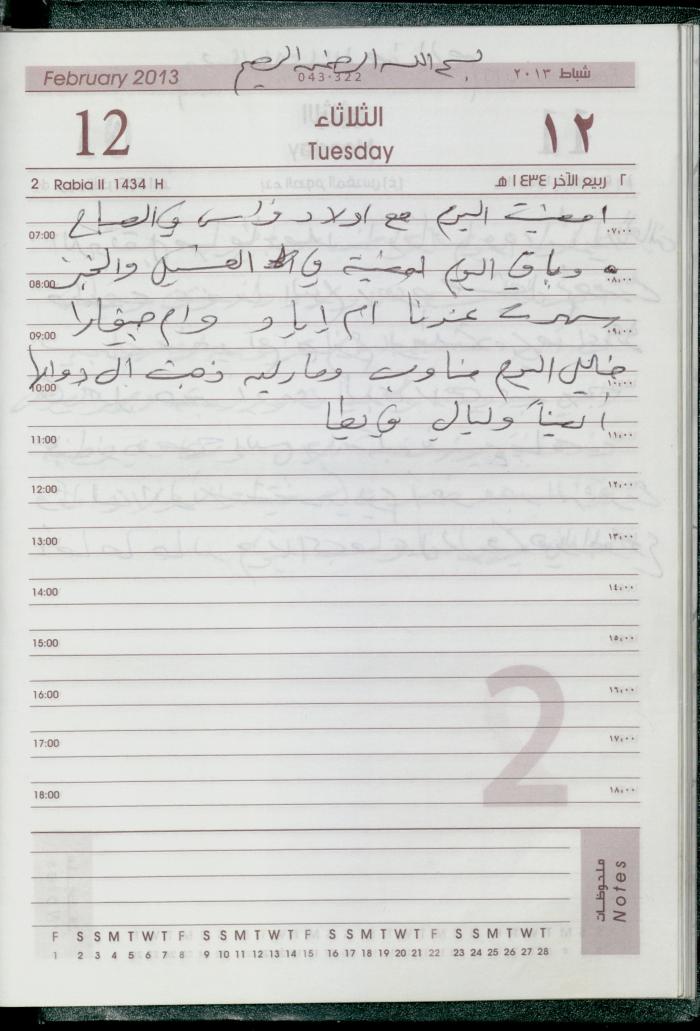 بسم الله الرحمن الرحيم
February 2013
043-322
شباط ٢٠١٣
12
الثلاثاء
Tuesday
١٢
2 Rabia II 1434 H
٢ ربيع الآخر ١٤٣٤ هـ
امضيت اليوم مع اولاد في الصباح
07:00 ٠٧,٠٠
وباقي اليوم امضيته في الغسيل والخبز
08:00 ٠٨,٠٠
سهرت عندنا ام اياد وام
09:00 ٠٩,٠٠
اليوم مناوب وماريه ذهبت الى
10:00 ١٠,٠٠
وليالي
11:00 ١١,٠٠
12:00 ١٢,٠٠
13:00 ١٣,٠٠
14:00 ١٤,٠٠
15:00 ١٥,٠٠
16:00 ١٦,٠٠
17:00 ١٧,٠٠
18:00 ١٨,٠٠
2
ملحوظات
Notes
F S S M T W T F S S M T W T F S S M T W T F S S M T W T
1 2 3 4 5 6 7 8 9 10 11 12 13 14 15 16 17 18 19 20 21 22 23 24 25 26 27 28